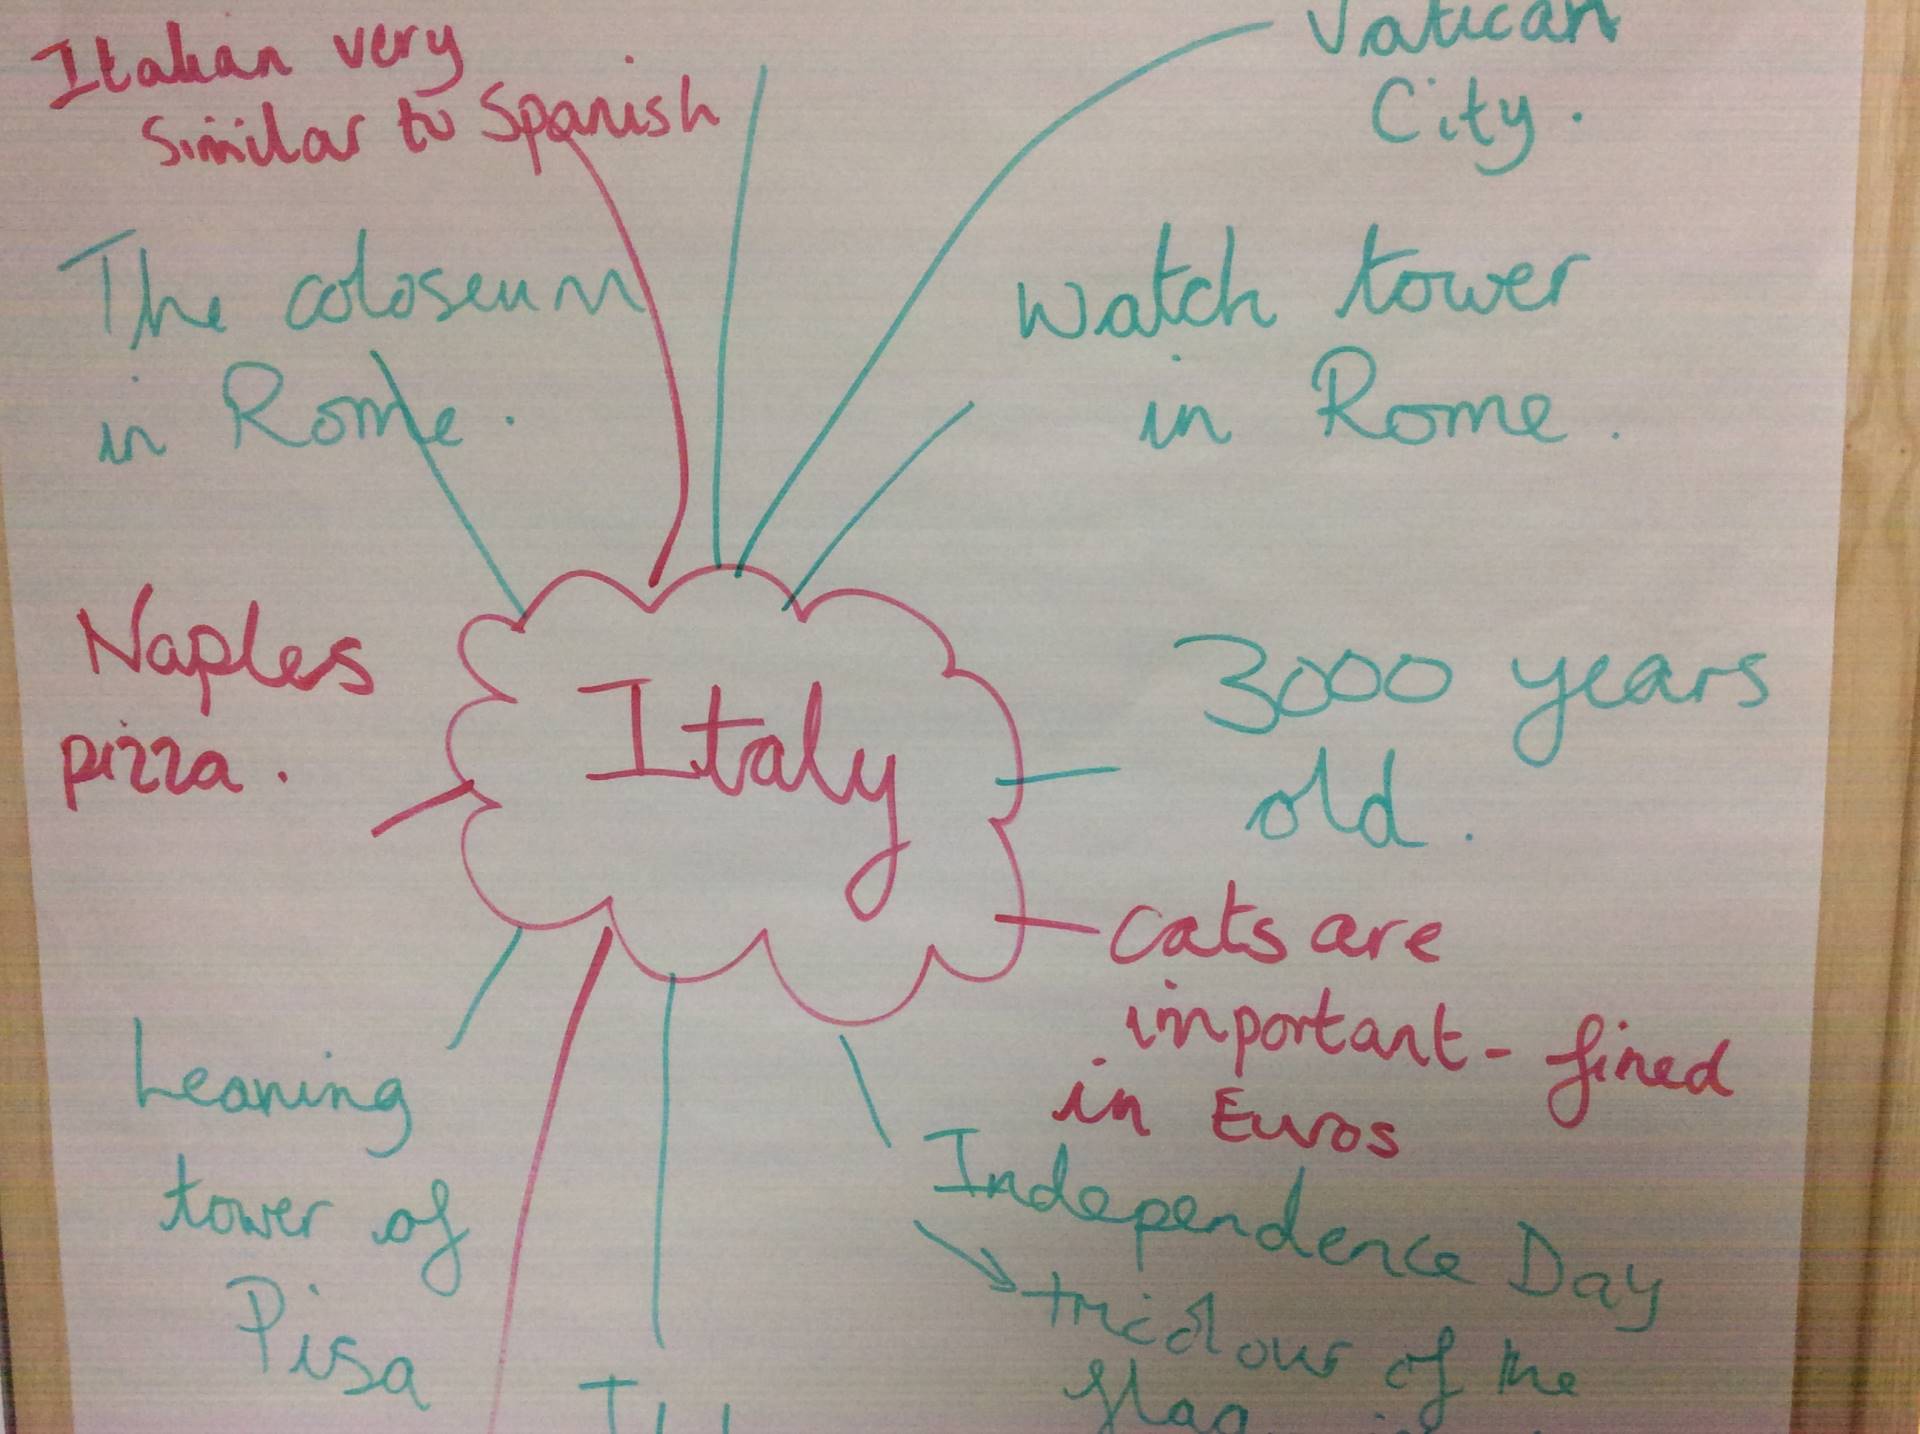 Italian very
similar to Spanish
Vatican
City.
The coloseum
in Rome.
Watch tower
in Rome.
Naples
pizza.
Italy
3000 years
old.
cats are
important - fined
in Euros
Leaning
tower of
Pisa
Independence Day
tricolour of the
flag